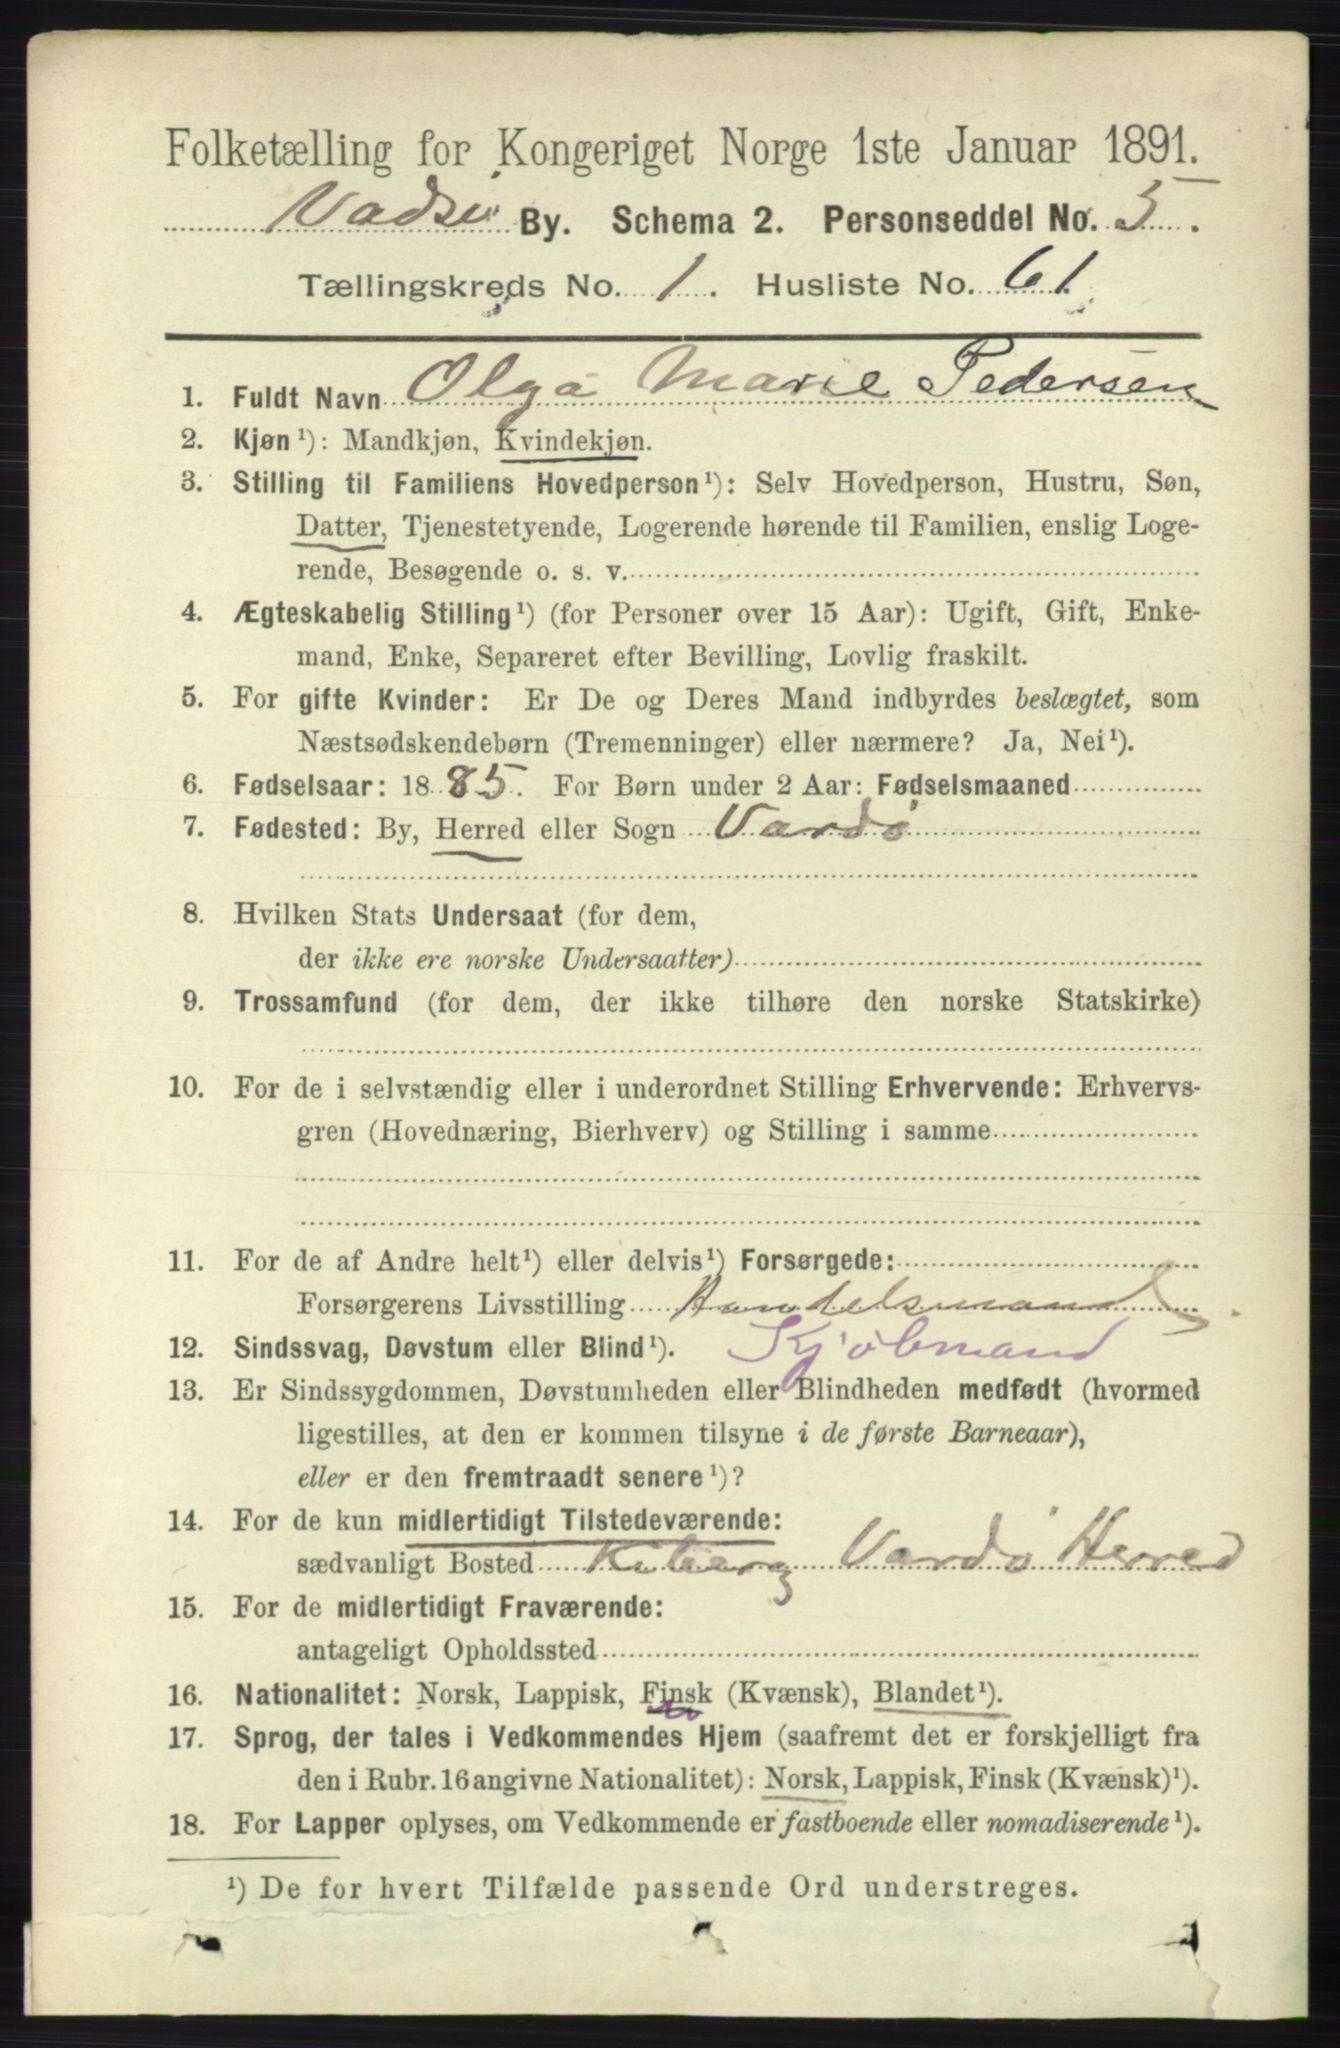 Folketælling for Kongeriget Norge 1ste Januar 1891.
Vadsø By. Schema 2. Personseddel No. 5.
Tællingskreds No. 1. Husliste No. 61.
1. Fuldt Navn Olga Marie Pedersen
2. Kjøn ¹): Mandkjøn, Kvindekjøn.
3. Stilling til Familiens Hovedperson ¹): Selv Hovedperson, Hustru, Søn,
Datter, Tjenestetyende, Logerende hørende til Familien, enslig Loge-
rende, Besøgende o. s. v.
4. Ægteskabelig Stilling ¹) (for Personer over 15 Aar): Ugift, Gift, Enke-
mand, Enke, Separeret efter Bevilling, Lovlig fraskilt.
5. For gifte Kvinder: Er De og Deres Mand indbyrdes beslægtet, som
Næstsødskendebørn (Tremenninger) eller nærmere? Ja, Nei ¹).
6. Fødselsaar: 1885. For Børn under 2 Aar: Fødselsmaaned
7. Fødested: By, Herred eller Sogn Vardø
8. Hvilken Stats Undersaat (for dem,
der ikke ere norske Undersaatter)
9. Trossamfund (for dem, der ikke tilhøre den norske Statskirke)
10. For de i selvstændig eller i underordnet Stilling Erhvervende: Erhvervs-
gren (Hovednæring, Bierhverv) og Stilling i samme
11. For de af Andre helt ¹) eller delvis ¹) Forsørgede:
Forsørgerens Livsstilling Handelsmand
12. Sindssvag, Døvstum eller Blind ¹). Kjøbmand
13. Er Sindssygdommen, Døvstumheden eller Blindheden medfødt (hvormed
ligestilles, at den er kommen tilsyne i de første Barneaar),
eller er den fremtraadt senere ¹)?
14. For de kun midlertidigt Tilstedeværende:
sædvanligt Bosted Kiberg Vardø Herred
15. For de midlertidigt Fraværende:
antageligt Opholdssted
16. Nationalitet: Norsk, Lappisk, Finsk (Kvænsk), Blandet ¹).
17. Sprog, der tales i Vedkommendes Hjem (saafremt det er forskjelligt fra
den i Rubr. 16 angivne Nationalitet): Norsk, Lappisk, Finsk (Kvænsk) ¹).
18. For Lapper oplyses, om Vedkommende er fastboende eller nomadiserende ¹).
¹) De for hvert Tilfælde passende Ord understreges.